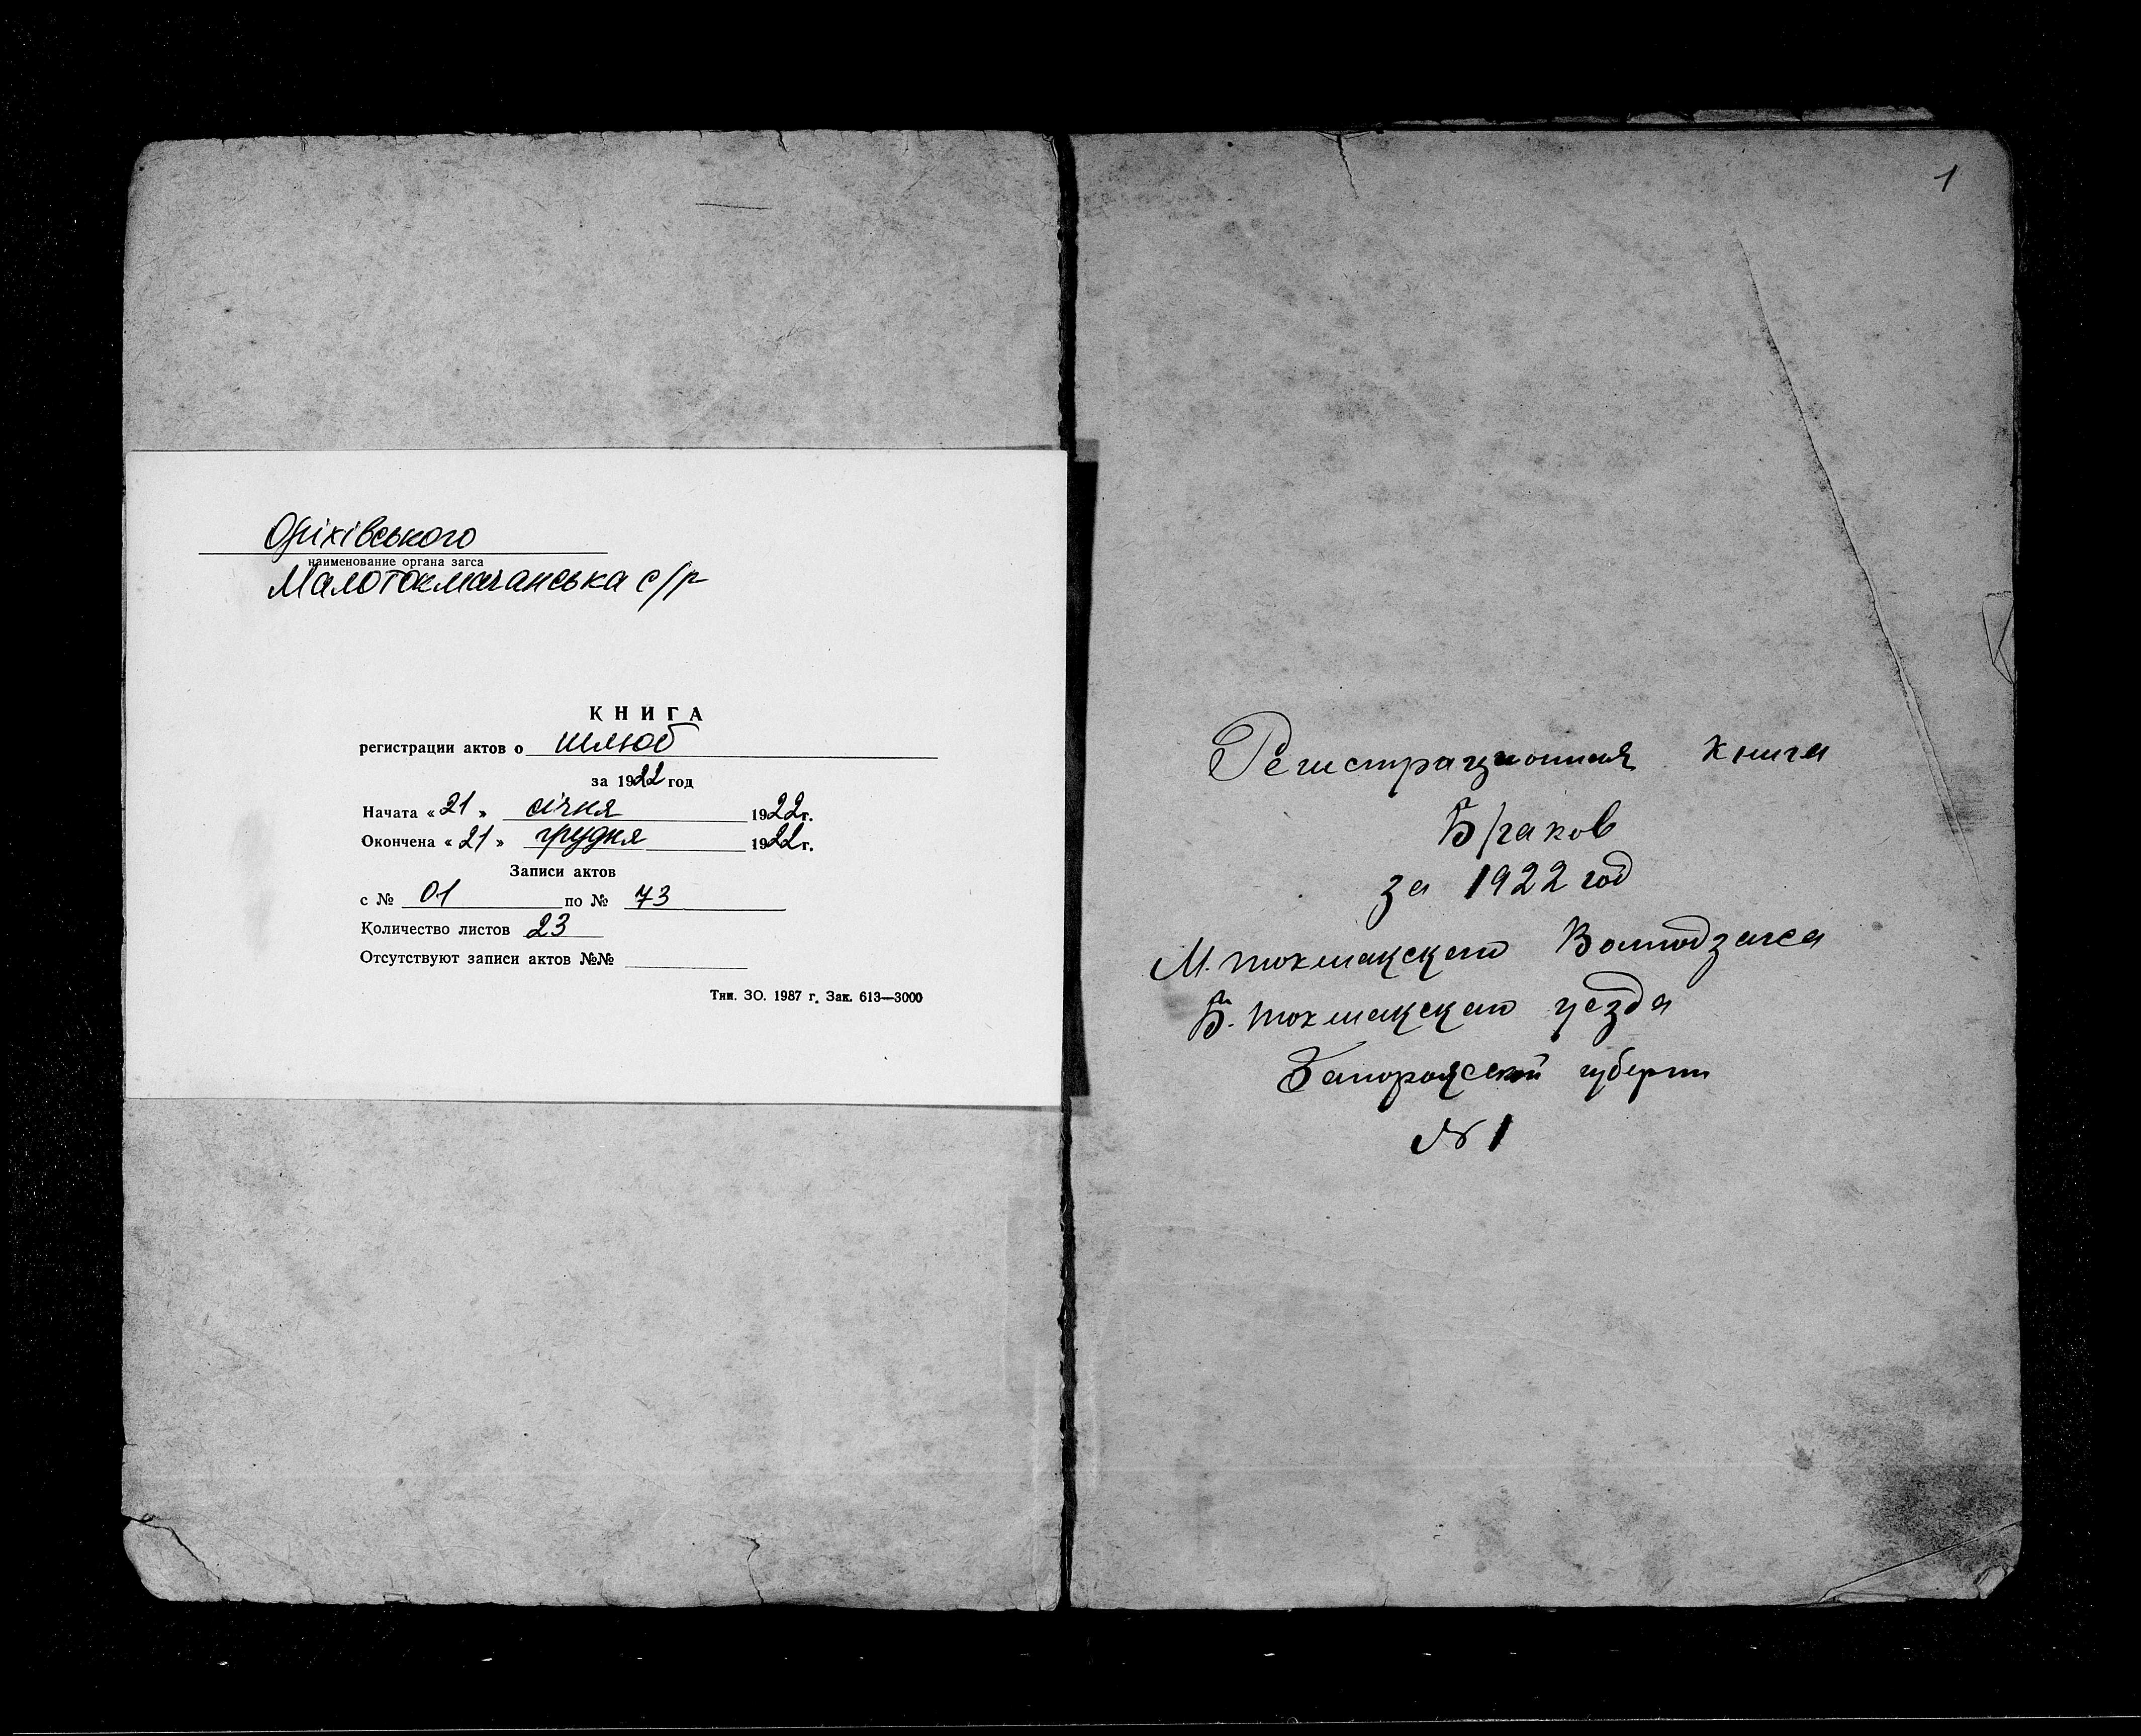 Оріхівського
наименование органа загса
Малотокмачанська с/р
КНИГА
регистрации актов о шлюб
за 1922 год
Начата «21» січня 1922г.
Окончена «21» грудня 1922г.
Записи актов
с № 01 по № 73
Количество листов 23
Отсутствуют записи актов №№
Тип. ЗО. 1987 г. Зак. 613—3000
1
Регистрационная книга
Браков
за 1922 год
М. токмакского Волподзагса
Б. токмакского уезда
Запорожской губерни
№ 1